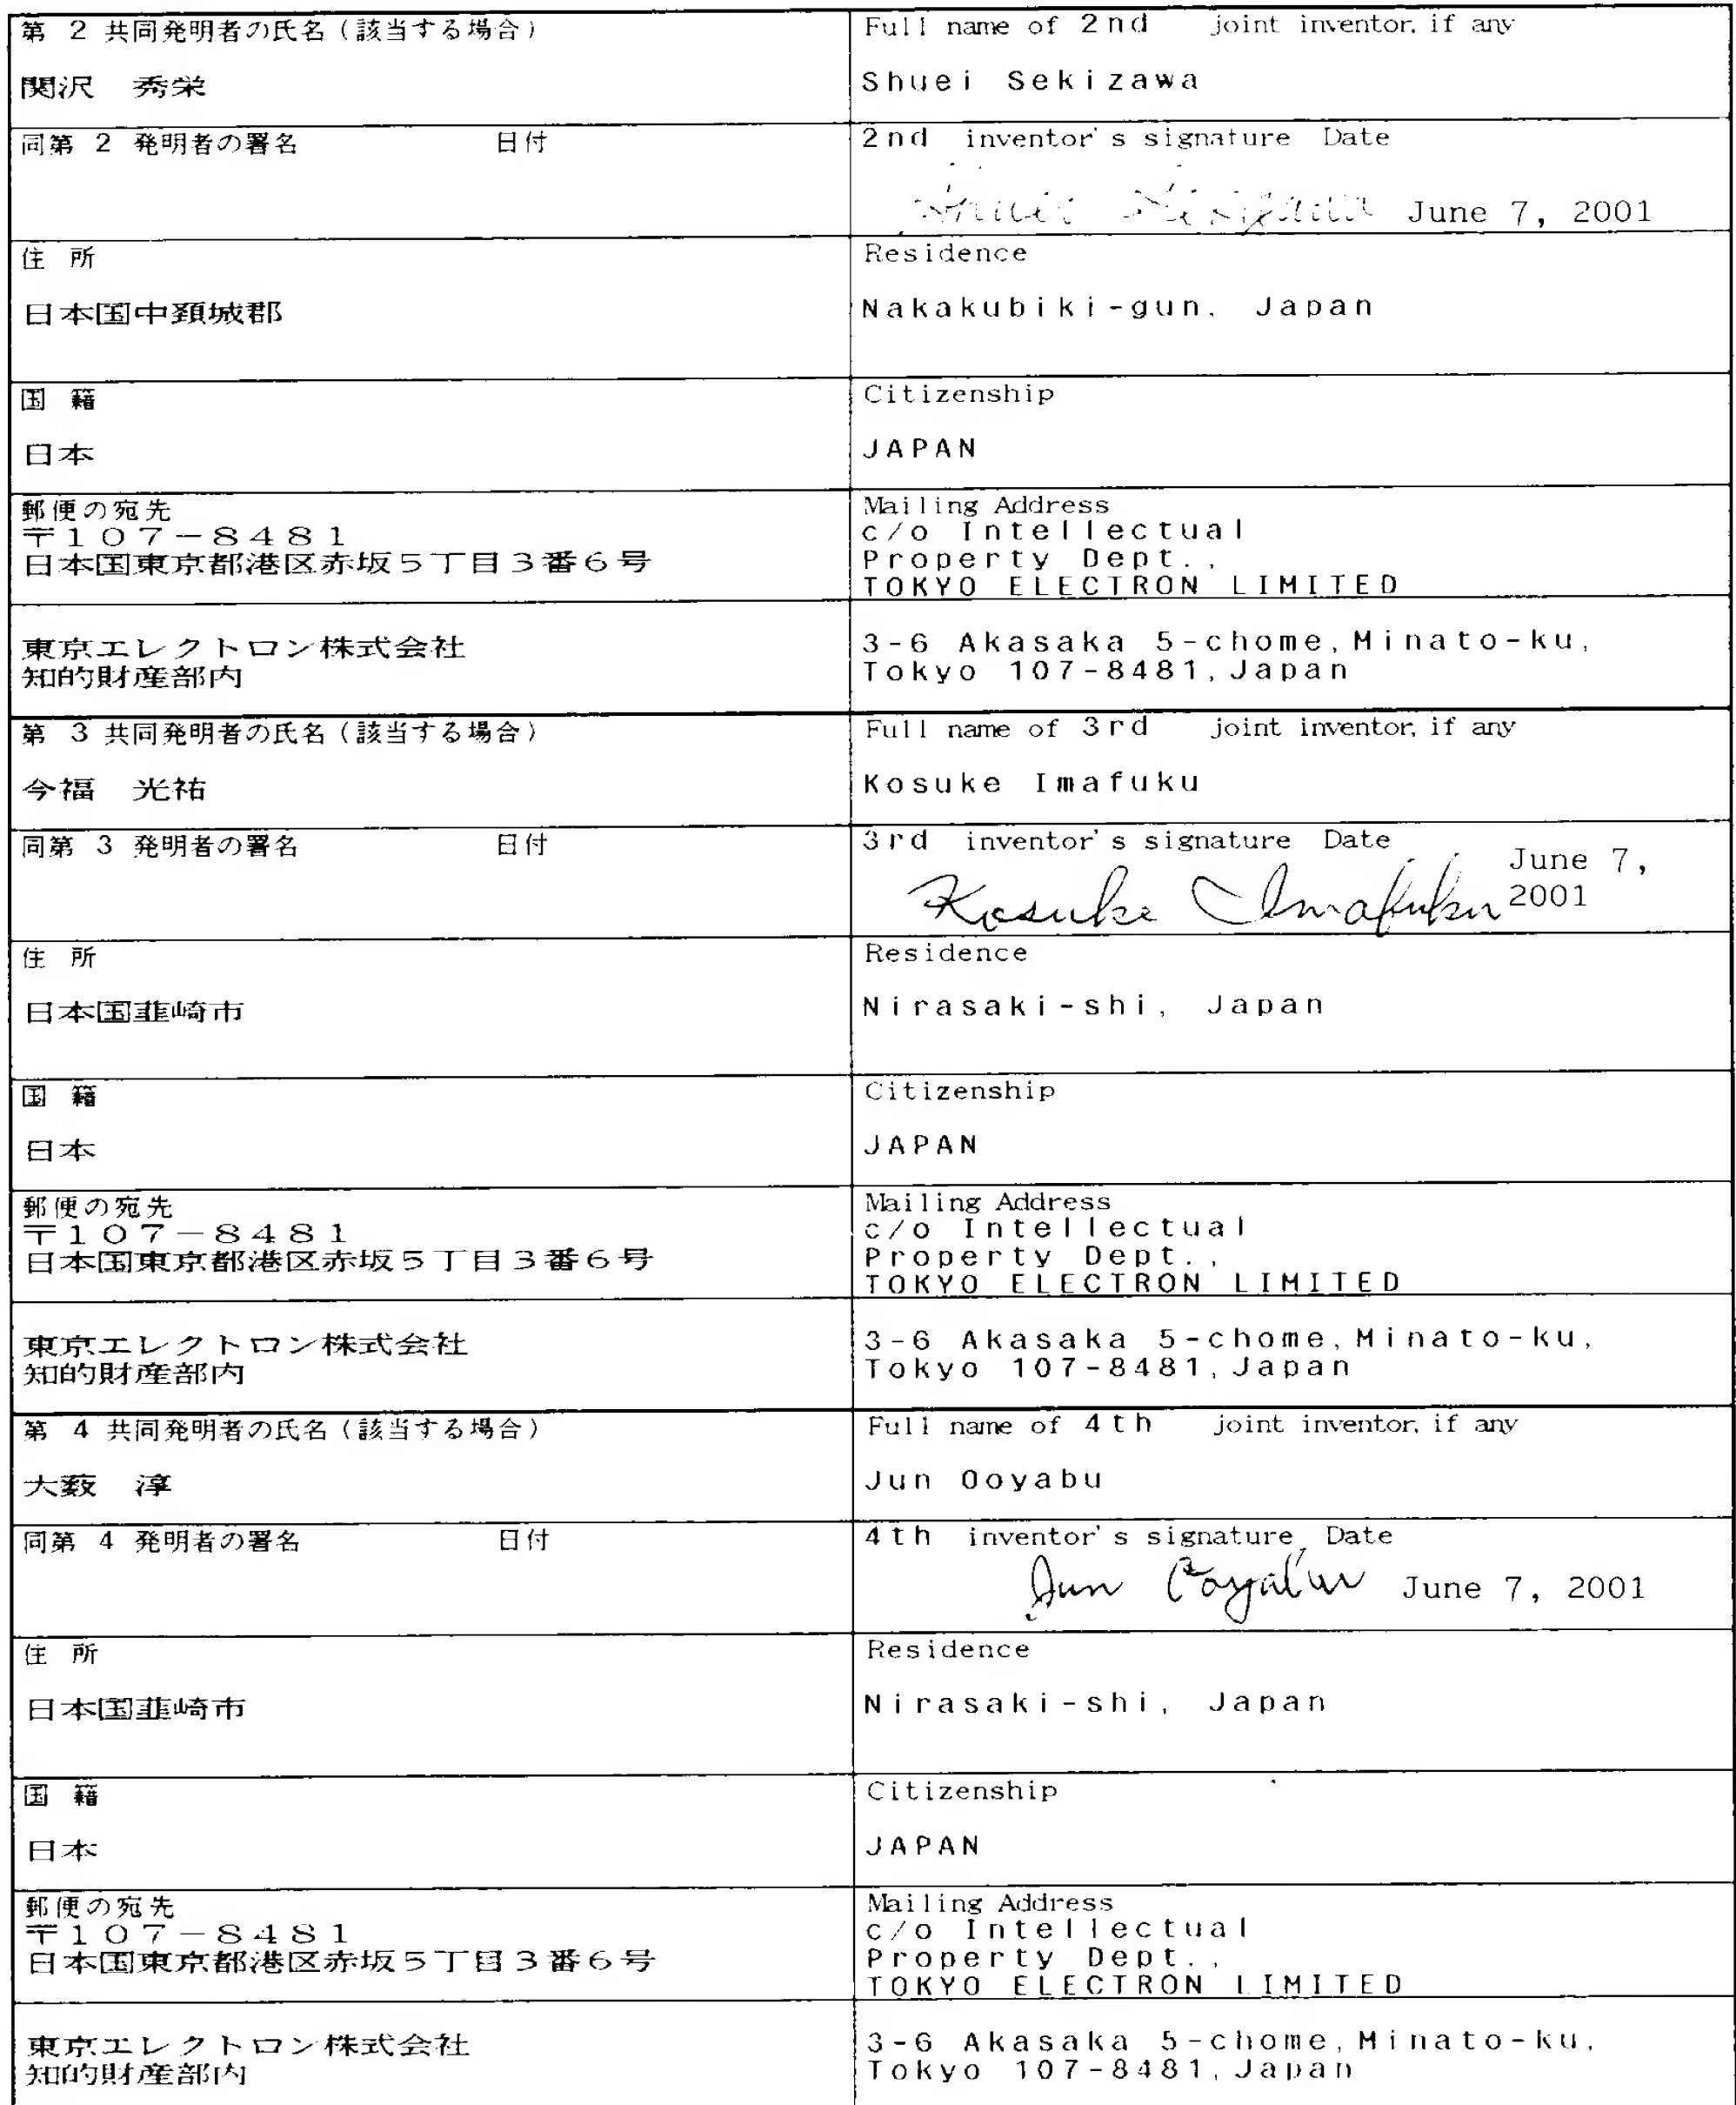 第 2 共同発明者の氏名(該当する場合)
Full name of 2nd joint inventor, if any
関沢 秀栄
Shuei Sekizawa
同第 2 発明者の署名 日付
2nd inventor's signature Date
Shuei Sekizawa June 7, 2001
住 所
Residence
日本国中頚城郡
Nakakubiki-gun, Japan
国 籍
Citizenship
日本
JAPAN
郵便の宛先
〒107-8481
日本国東京都港区赤坂5丁目3番6号
Mailing Address
c/o Intellectual
Property Dept.,
TOKYO ELECTRON LIMITED
東京エレクトロン株式会社
知的財産部内
3-6 Akasaka 5-chome,Minato-ku,
Tokyo 107-8481,Japan
第 3 共同発明者の氏名(該当する場合)
Full name of 3rd joint inventor, if any
今福 光祐
Kosuke Imafuku
同第 3 発明者の署名 日付
3rd inventor's signature Date
Kosuke Imafuku June 7,
2001
住 所
Residence
日本国韮崎市
Nirasaki-shi, Japan
国 籍
Citizenship
日本
JAPAN
郵便の宛先
〒107-8481
日本国東京都港区赤坂5丁目3番6号
Mailing Address
c/o Intellectual
Property Dept.,
TOKYO ELECTRON LIMITED
東京エレクトロン株式会社
知的財産部内
3-6 Akasaka 5-chome,Minato-ku,
Tokyo 107-8481,Japan
第 4 共同発明者の氏名(該当する場合)
Full name of 4th joint inventor, if any
大薮 淳
Jun Ooyabu
同第 4 発明者の署名 日付
4th inventor's signature Date
Jun Ooyabu June 7, 2001
住 所
Residence
日本国韮崎市
Nirasaki-shi, Japan
国 籍
Citizenship
日本
JAPAN
郵便の宛先
〒107-8481
日本国東京都港区赤坂5丁目3番6号
Mailing Address
c/o Intellectual
Property Dept.,
TOKYO ELECTRON LIMITED
東京エレクトロン株式会社
知的財産部内
3-6 Akasaka 5-chome,Minato-ku,
Tokyo 107-8481,Japan